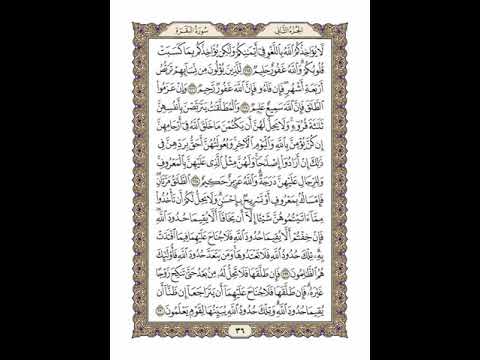 الجزء الثاني
سورة البقرة
لَّا يُؤَاخِذُكُمُ ٱللَّهُ بِٱللَّغْوِ فِىٓ أَيْمَٰنِكُمْ وَلَٰكِن يُؤَاخِذُكُم بِمَا كَسَبَتْ
قُلُوبُكُمْ وَٱللَّهُ غَفُورٌ حَلِيمٌ ٢٢٥ لِّلَّذِينَ يُؤْلُونَ مِن نِّسَآئِهِمْ تَرَبُّصُ
أَرْبَعَةِ أَشْهُرٍ فَإِن فَآءُو فَإِنَّ ٱللَّهَ غَفُورٌ رَّحِيمٌ ٢٢٦ وَإِنْ عَزَمُوا۟
ٱلطَّلَٰقَ فَإِنَّ ٱللَّهَ سَمِيعٌ عَلِيمٌ ٢٢٧ وَٱلْمُطَلَّقَٰتُ يَتَرَبَّصْنَ بِأَنفُسِهِنَّ
ثَلَٰثَةَ قُرُوٓءٍ وَلَا يَحِلُّ لَهُنَّ أَن يَكْتُمْنَ مَا خَلَقَ ٱللَّهُ فِىٓ أَرْحَامِهِنَّ
إِن كُنَّ يُؤْمِنَّ بِٱللَّهِ وَٱلْيَوْمِ ٱلْءَاخِرِ وَبُعُولَتُهُنَّ أَحَقُّ بِرَدِّهِنَّ فِى
ذَٰلِكَ إِنْ أَرَادُوٓا۟ إِصْلَٰحًا وَلَهُنَّ مِثْلُ ٱلَّذِى عَلَيْهِنَّ بِٱلْمَعْرُوفِ
وَلِلرِّجَالِ عَلَيْهِنَّ دَرَجَةٌ وَٱللَّهُ عَزِيزٌ حَكِيمٌ ٢٢٨ ٱلطَّلَٰقُ مَرَّتَانِ
فَإِمْسَاكٌۢ بِمَعْرُوفٍ أَوْ تَسْرِيحٌۢ بِإِحْسَٰنٍ وَلَا يَحِلُّ لَكُمْ أَن تَأْخُذُوا۟
مِمَّآ ءَاتَيْتُمُوهُنَّ شَيْـًٔا إِلَّآ أَن يَخَافَآ أَلَّا يُقِيمَا حُدُودَ ٱللَّهِ
فَإِنْ خِفْتُمْ أَلَّا يُقِيمَا حُدُودَ ٱللَّهِ فَلَا جُنَاحَ عَلَيْهِمَا فِيمَا ٱفْتَدَتْ
بِهِۦ تِلْكَ حُدُودُ ٱللَّهِ فَلَا تَعْتَدُوهَا وَمَن يَتَعَدَّ حُدُودَ ٱللَّهِ فَأُو۟لَٰٓئِكَ
هُمُ ٱلظَّٰلِمُونَ ٢٢٩ فَإِن طَلَّقَهَا فَلَا تَحِلُّ لَهُۥ مِنۢ بَعْدُ حَتَّىٰ تَنكِحَ زَوْجًا
غَيْرَهُۥ فَإِن طَلَّقَهَا فَلَا جُنَاحَ عَلَيْهِمَآ أَن يَتَرَاجَعَآ إِن ظَنَّآ أَن
يُقِيمَا حُدُودَ ٱللَّهِ وَتِلْكَ حُدُودُ ٱللَّهِ يُبَيِّنُهَا لِقَوْمٍ يَعْلَمُونَ ٢٣٠
٣٦